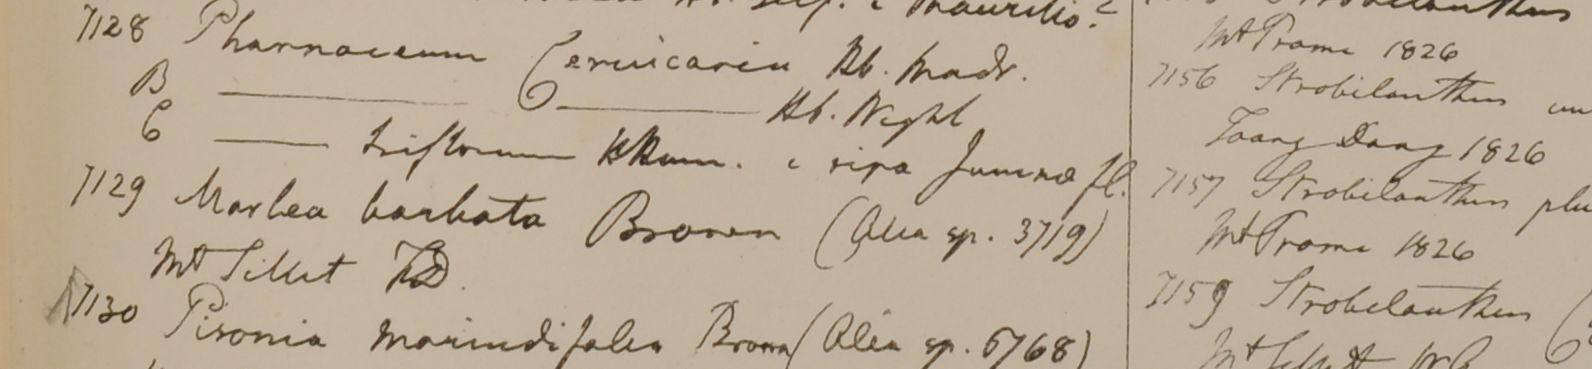 Hb. Self. e Mauritio?
7128 Pharnaceum Cervicaria Hb. Madr.
B ——— C ——— Hb. Wight
C ——— triflorum HHam. e ripa Jumnae fl.
7129 Marlea barbata Brown (Olea sp. 3719)
Mt Sillet FD.
7130 Pisonia morindifolia Brown (Olea sp. 6768)
Strobilanthus
Mt Prome 1826
7156 Strobilanthus
Taong Dong 1826
7157 Strobilanthus plu
Mt Prome 1826
7159 Strobilanthus (
Mt Sillet